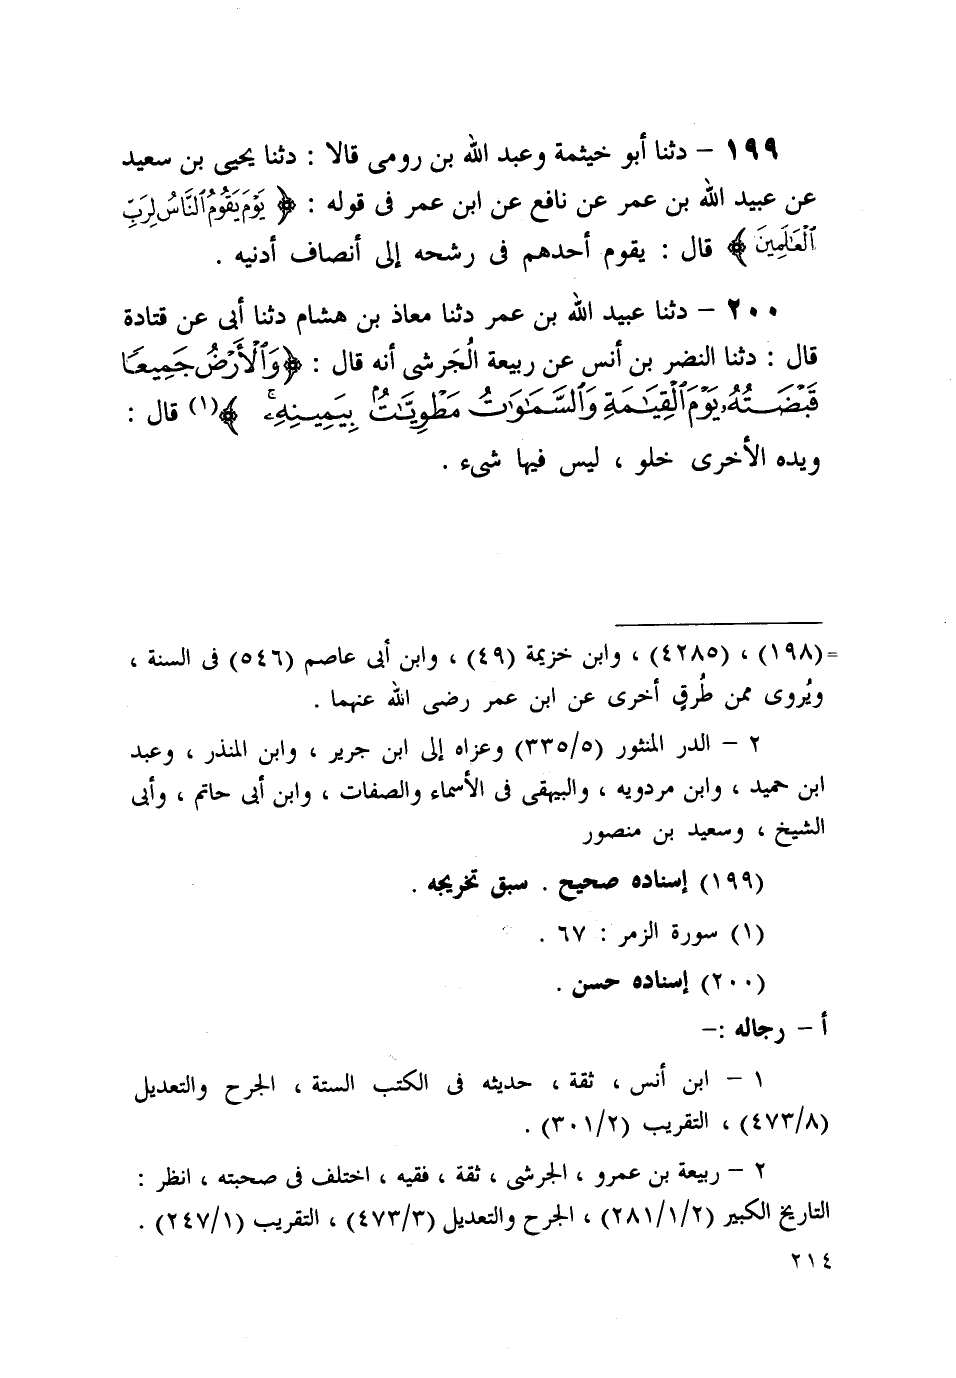 ١٩٩ – دثنا أبو خيثمة وعبد الله بن رومى قالا : دثنا يحيى بن سعيد
عن عبيد الله بن عمر عن نافع عن ابن عمر فى قوله : ﴿ يَوْمَ يَقُومُ ٱلنَّاسُ لِرَبِّ
ٱلْعَٰلَمِينَ ﴾ قال : يقوم أحدهم فى رشحه إلى أنصاف أدنيه .
٢٠٠ – دثنا عبيد الله بن عمر دثنا معاذ بن هشام دثنا أبى عن قتادة
قال : دثنا النضر بن أنس عن ربيعة الُجَرشى أنه قال : ﴿ وَٱلْأَرْضُ جَمِيعًا
قَبْضَتُهُۥ يَوْمَ ٱلْقِيَٰمَةِ وَٱلسَّمَٰوَٰتُ مَطْوِيَّٰتٌۢ بِيَمِينِهِۦ ﴾(١) قال :
ويده الأخرى خلو ، ليس فيها شىء .
=(١٩٨) ، (٤٢٨٥) ، وابن خزيمة (٤٩) ، وابن أبى عاصم (٥٤٦) فى السنة ،
ويُروى ممن طُرقٍ أخرى عن ابن عمر رضى الله عنهما .
٢ – الدر المنثور (٣٣٥/٥) وعزاه إلى ابن جرير ، وابن المنذر ، وعبد
ابن حميد ، وابن مردويه ، والبيهقى فى الأسماء والصفات ، وابن أبى حاتم ، وأبى
الشيخ ، وسعيد بن منصور
(١٩٩) إسناده صحيح . سبق تخريجه .
(١) سورة الزمر : ٦٧ .
(٢٠٠) إسناده حسن .
أ – رجاله :–
١ – ابن أنس ، ثقة ، حديثه فى الكتب الستة ، الجرح والتعديل
(٤٧٣/٨) ، التقريب (٣٠١/٢) .
٢ – ربيعة بن عمرو ، الجرشى ، ثقة ، فقيه ، اختلف فى صحبته ، انظر :
التاريخ الكبير (٢٨١/١/٢) ، الجرح والتعديل (٤٧٣/٣) ، التقريب (٢٤٧/١) .
٢١٤